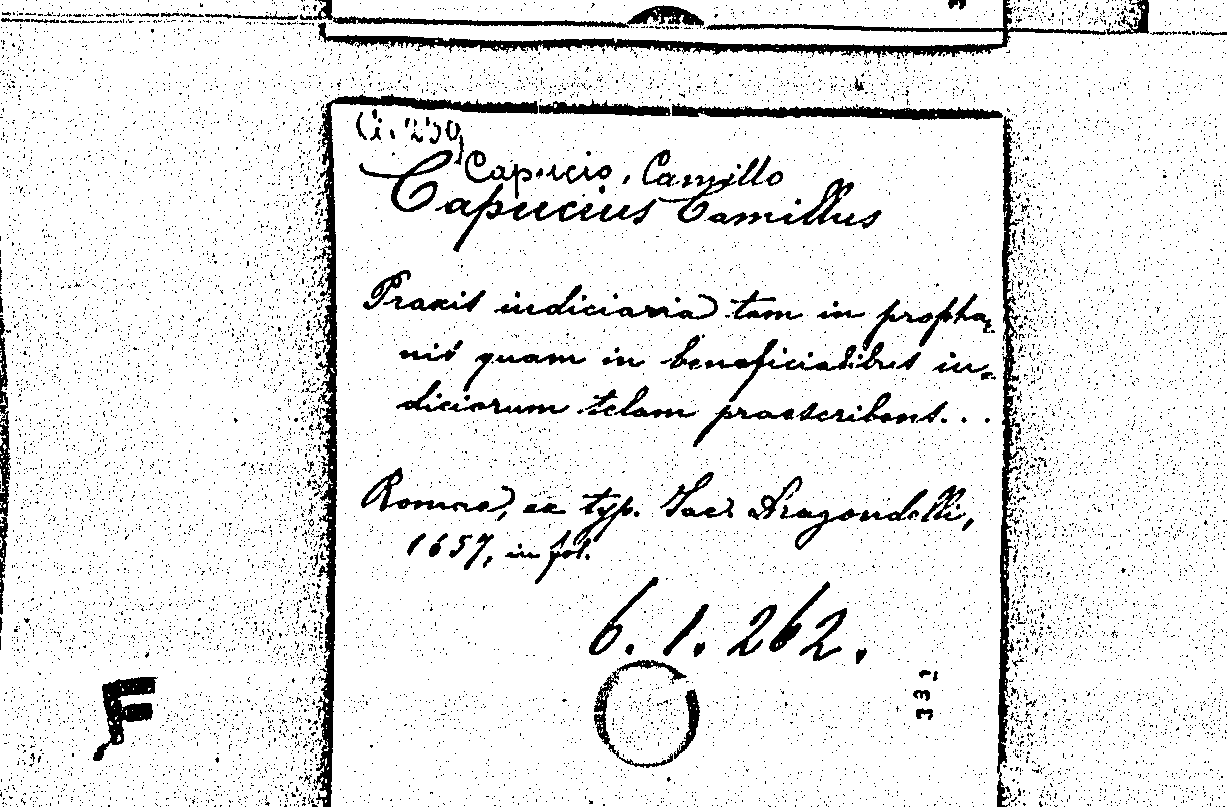 G. 239
Capucio, Camillo
Capucius Camillus
Praxis iudiciaria tam in propha-
nis quam in beneficialibus iu-
diciorum telam praescribens...
Romae, ex typ. Iac. Dragondelli,
1657, in fol.
6. 1. 262.
331
F